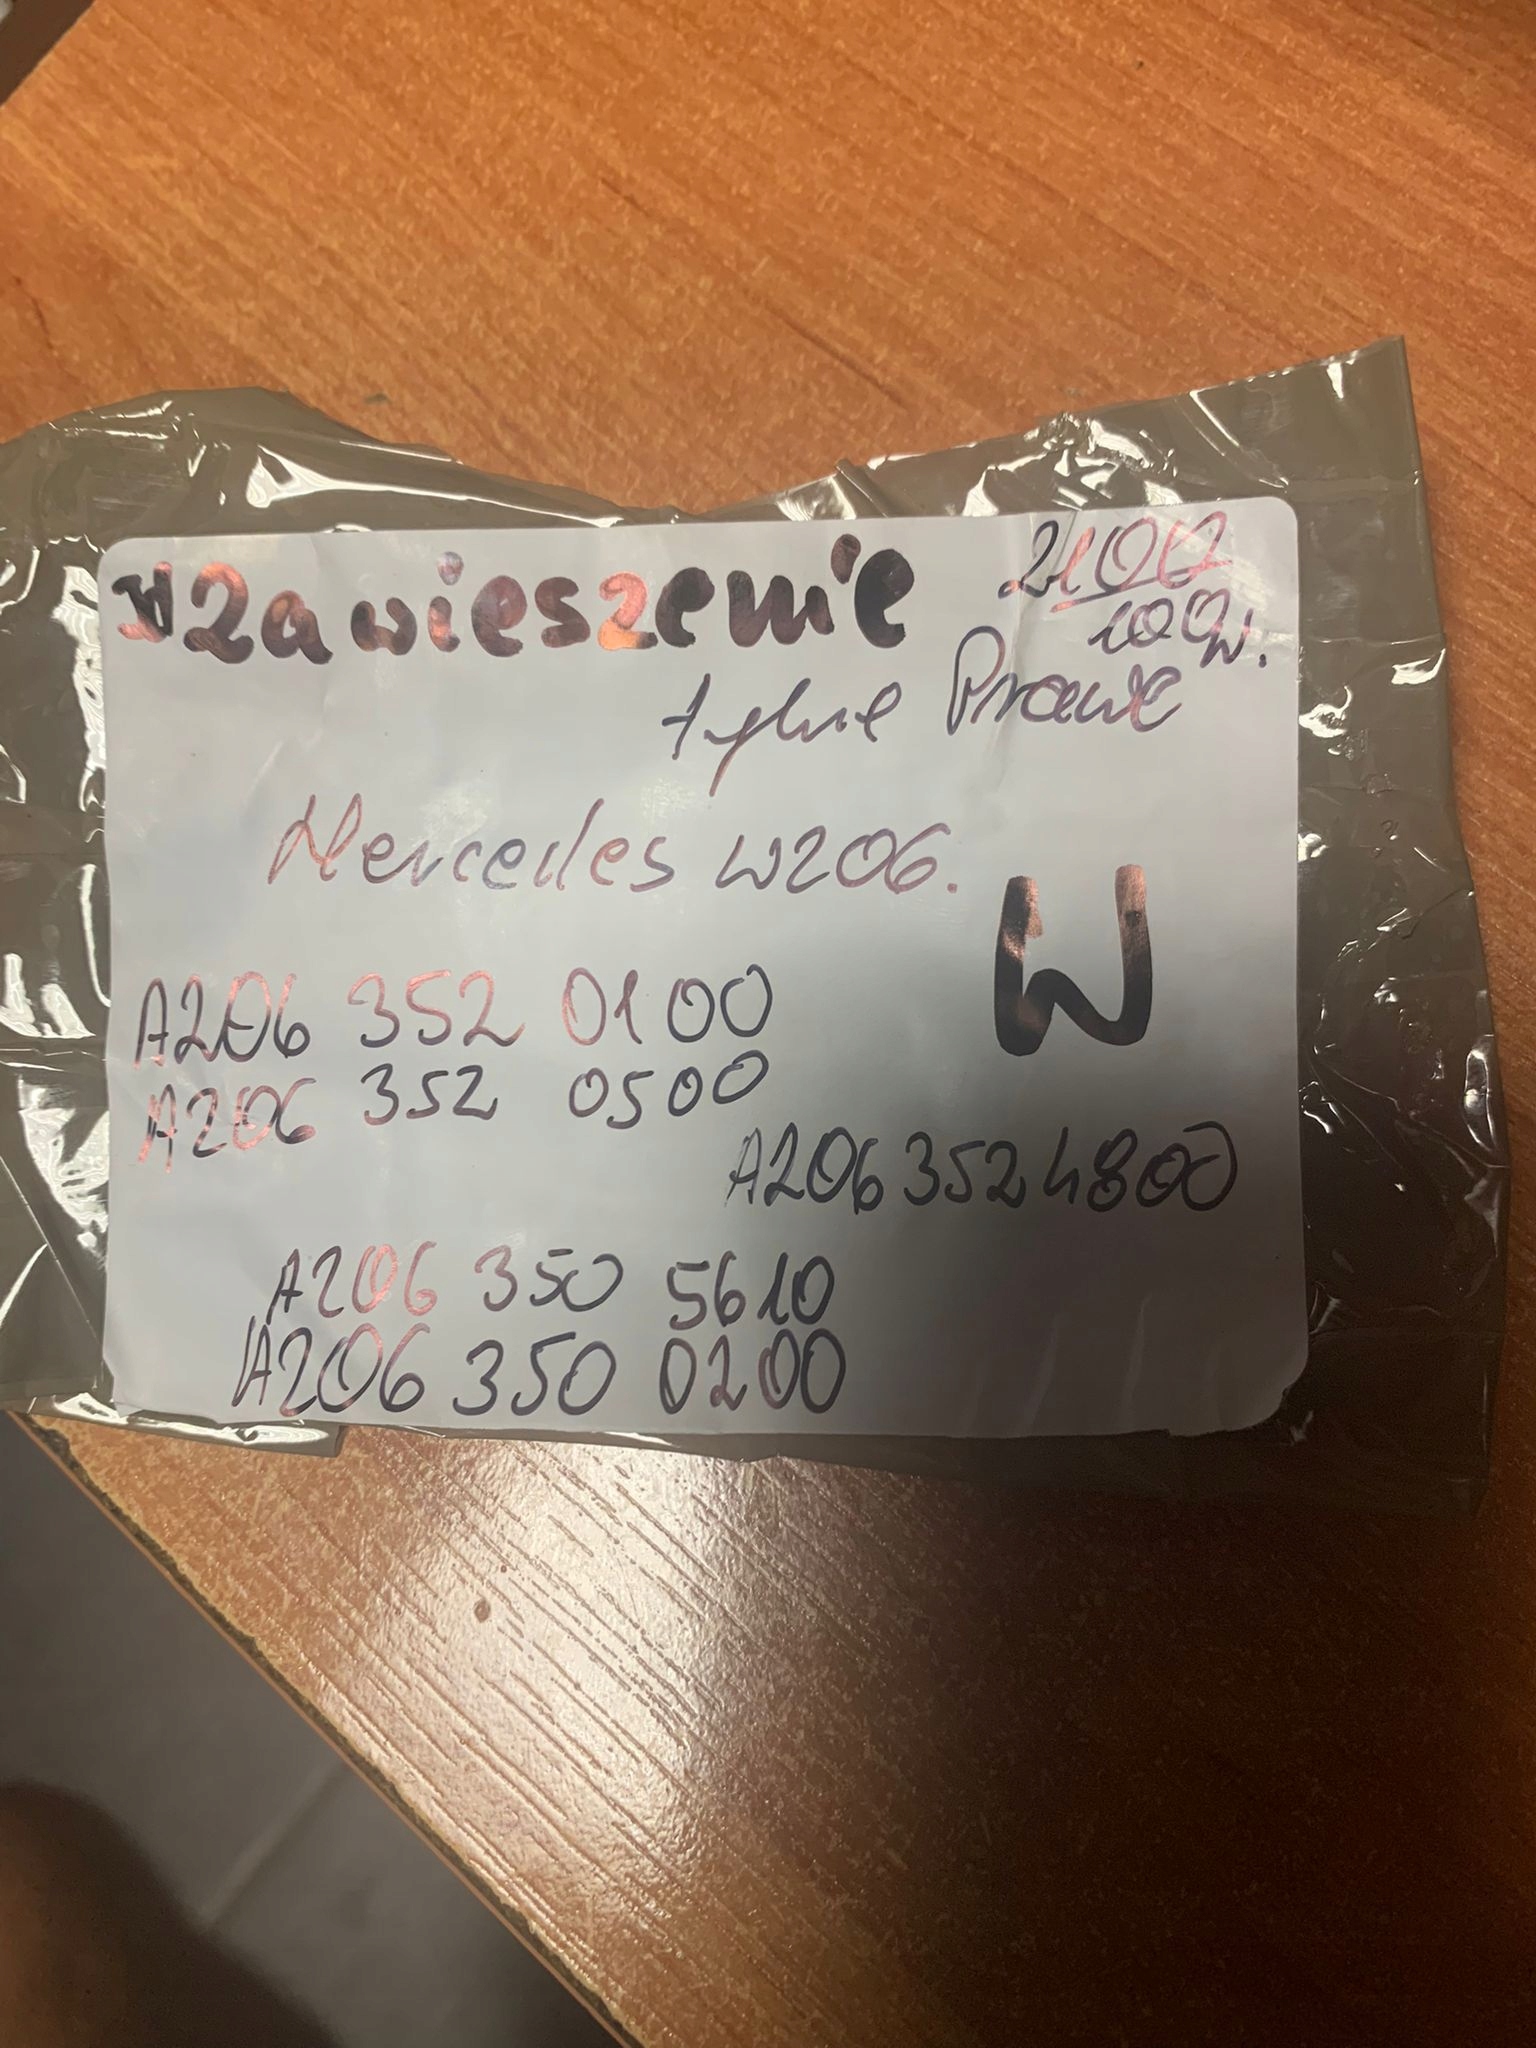 Zawieszenie
2100
tylne Prawe
Mercedes W206.
W
A206 352 0100
A206 352 0500
A206 352 4800
A206 350 5610
A206 350 0200